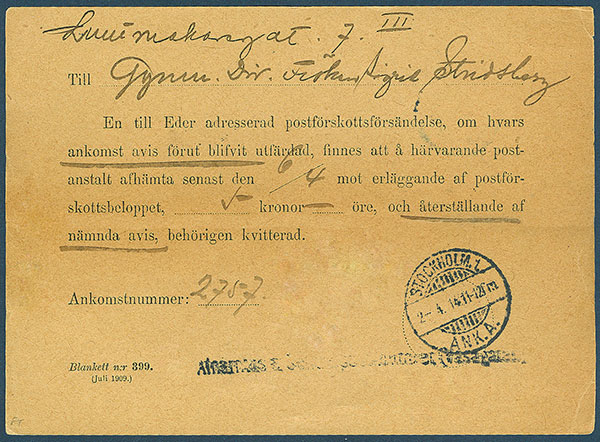 7. III
Till Gymn. Dir. Fröken Sigrid Stridsberg
En till Eder adresserad postförskottsförsändelse, om hvars
ankomst avis förut blifvit utfärdad, finnes att å härvarande post-
anstalt afhämta senast den 6/4 mot erläggande af postför-
skottsbeloppet, 5 kronor — öre, och återställande af
nämnda avis, behörigen kvitterad.
STOCKHOLM. 1.
2-4.14.11-12FM
ANK.A.
Ankomstnummer: 2757.
Blankett n:r 399.
(Juli 1909.)